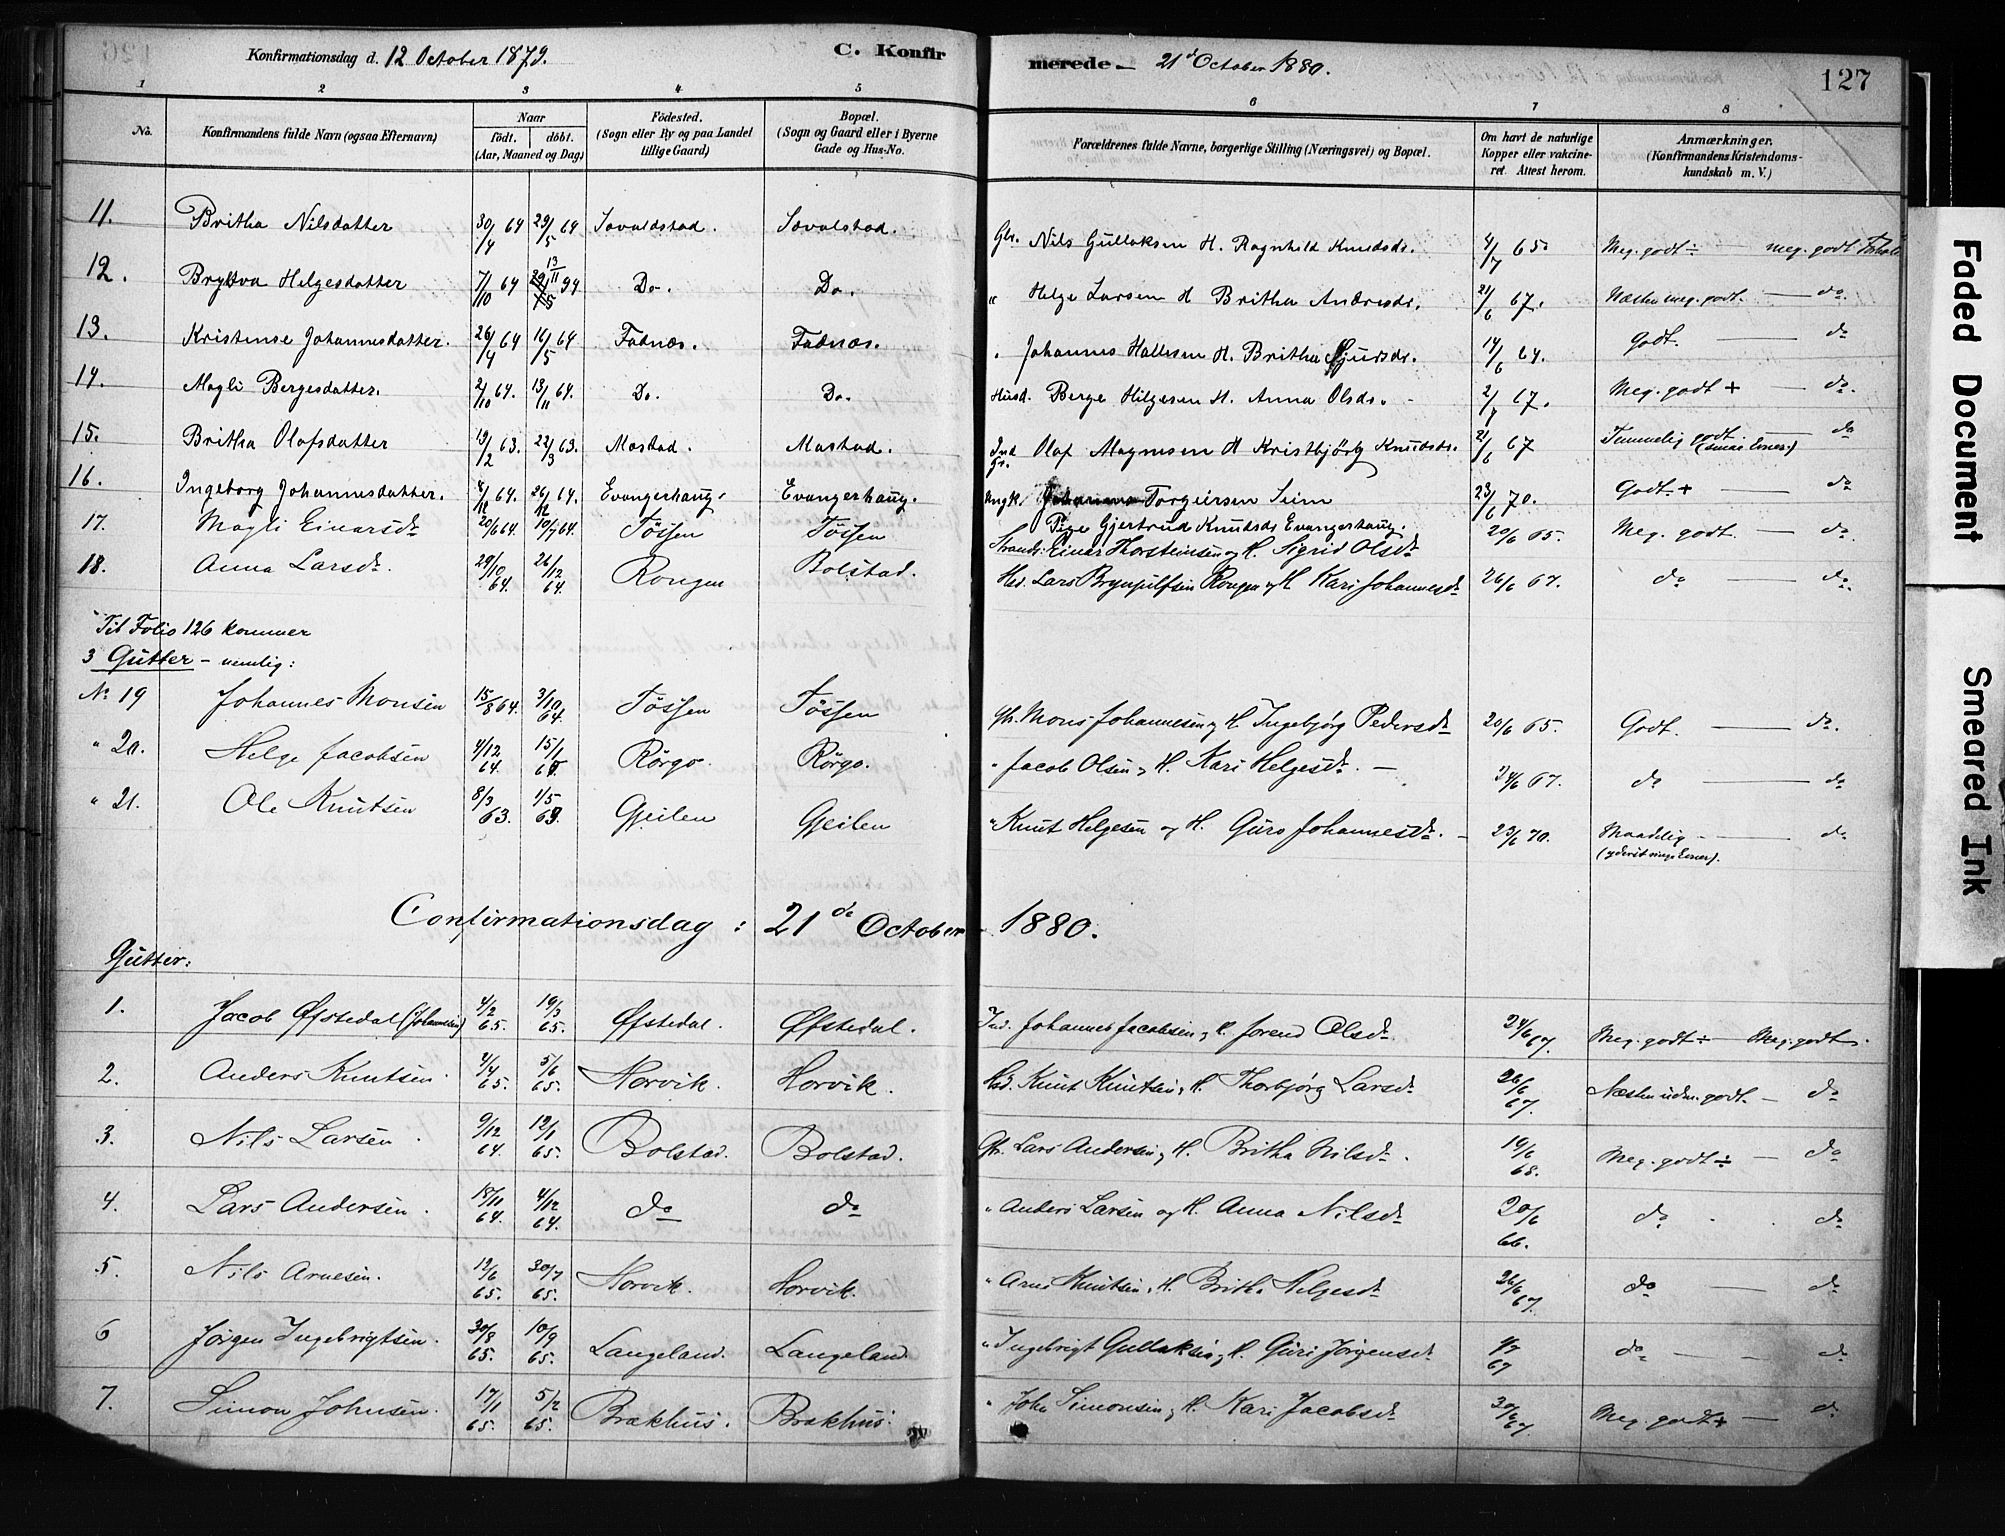 Konfirmationsdag d. 12 October 1879. C. Konfirmerede — 21d October 1880. 127
1 2 3 4 5 6 7 8
No. Konfirmandens fulde Navn (ogsaa Efternavn) Naar født. døbt. (Aar, Maaned og Dag) Fødested. (Sogn eller By og paa Landet tillige Gaard) Bopæl. (Sogn og Gaard eller i Byerne Gade og Hus-No. Forældrenes fulde Navne, borgerlige Stilling (Næringsvei) og Bopæl. Om havt de naturlige Kopper eller vakcineret. Attest herom. Anmærkninger. (Konfirmandens Kristendomskundskab m. V.)
11. Britha Nilsdatter 30/4 64 29/5 64 Sovaldstad. Sovalstad. Gbr. Nils Gullaksen H. Ragnhild Knudsdr. 4/7 65 Meg. godt ÷ — meg. godt Forhold
12. Brytva Helgesdatter 7/10 64 13/11 Do. Do. " Helge Larsen H Britha Andresdr. 21/6 67. Næsten meg. godt. — do
13. Kristense Johannesdatter. 26/4 64 16/5 64 Fadnæs. Fadnæs. " Johannes Hallesen H. Britha Sjursdr. 14/6 64. Godt. — do
14. Magli Bergesdatter. 2/10 64. 13/11 64. Do. Do. Husd. Berge Helgesen H. Anna Olsdr. 2/7 67. Meg. godt + — do.
15. Britha Olafsdatter 19/2 63. 22/3 63. Mostad. Mostad. Ind. Gr. Olaf Magnesen H Kristbjörg Knudsdr. 21/6 67 Temmelig godt (smaa Evner) — do
16. Ingeborg Johannesdatter. 8/12 64. 26/12 64. Evangerhaug. Evangerhaug. Ungk. Torgeirsen Seim 23/6 70. Godt + — do
Pige Gjertrud Knudsdr Evangerhaug.
17. Magli Einarsdr 20/6 64 10/7 64. Tössen Tössen Strands. Einar Thorsteinsen og H. Sigrid Olsdr 20/6 65. Meg. godt. — do.
18. Anna Larsdr. 29/10 64. 26/12 64. Rongen Bolstad. Hus. Lars Brynjulfsen Rongen og H Kari Johannesdr 26/6 67. do — do.
Til Folio 126 kommer
3 Gutter – nemlig:
No 19 Johannes Monsen 15/8 64. 3/10 64. Tössen Tössen Gbr. Mons Johannesen og H Ingebjørg Pedersdr 20/6 65. Godt. — do.
" 20. Helge Jacobsen 4/12 64. 15/1 65 Rörgo. Rörgo. " Jacob Olsen, H. Kari Helgesdr. — 24/6 67. do — do
" 21. Ole Knutsen 8/3 63. 1/5 63. Gjeilen Gjeilen " Knut Helgesen og H. Guro Johannesdr. — 23/6 70. Maadelig — do
(yderst ringe Evner).
Confirmationsdag : 21de October 1880.
Gutter:
1. Jacob Øfstedal (Johannesen) 4/2 65. 19/3 65. Øfstedal. Øfstedal. Ind. Johannes Jacobsen, H. Jorend Olsdr 24/6 67. Meg. godt ÷ Meg. godt.
2. Anders Knutsen. 2/4 65. 5/6 65. Horvik. Horvik. Hsd. Knut Knutsen, H. Thorbjørg Larsdr 26/6 67. Næsten udm. godt. — do
3. Nils Larsen. 9/12 64. 12/1 65. Bolstad. Bolstad. Gbr. Lars Andersen, H. Britha Nilsdr. 19/6 68. Meg. godt ÷ — do
4. Lars Andersen. 18/11 64. 4/12 64. do do " Anders Larsen og H. Anna Nilsdr 20/6 66. do do
5. Nils Arnesen. 12/6 65. 30/7 65. Horvik. Horvik. " Arne Knutsen, H. Britha Helgesdr 26/6 67. do — do
6 Jörgen Ingebrigtsen. 30/8 65. 10/9 65. Langeland. Langeland. " Ingebrigt Gullaksen, H. Guri Jörgensdr 67 do — do
7. Simon Johnsen. 17/1 65. 5/2 65. Brækhus. Brækhus. " John Simonsen, H. Kari Jacobsdr 20/6 67. Meg. godt + — do
Faded Document
Smeared Ink